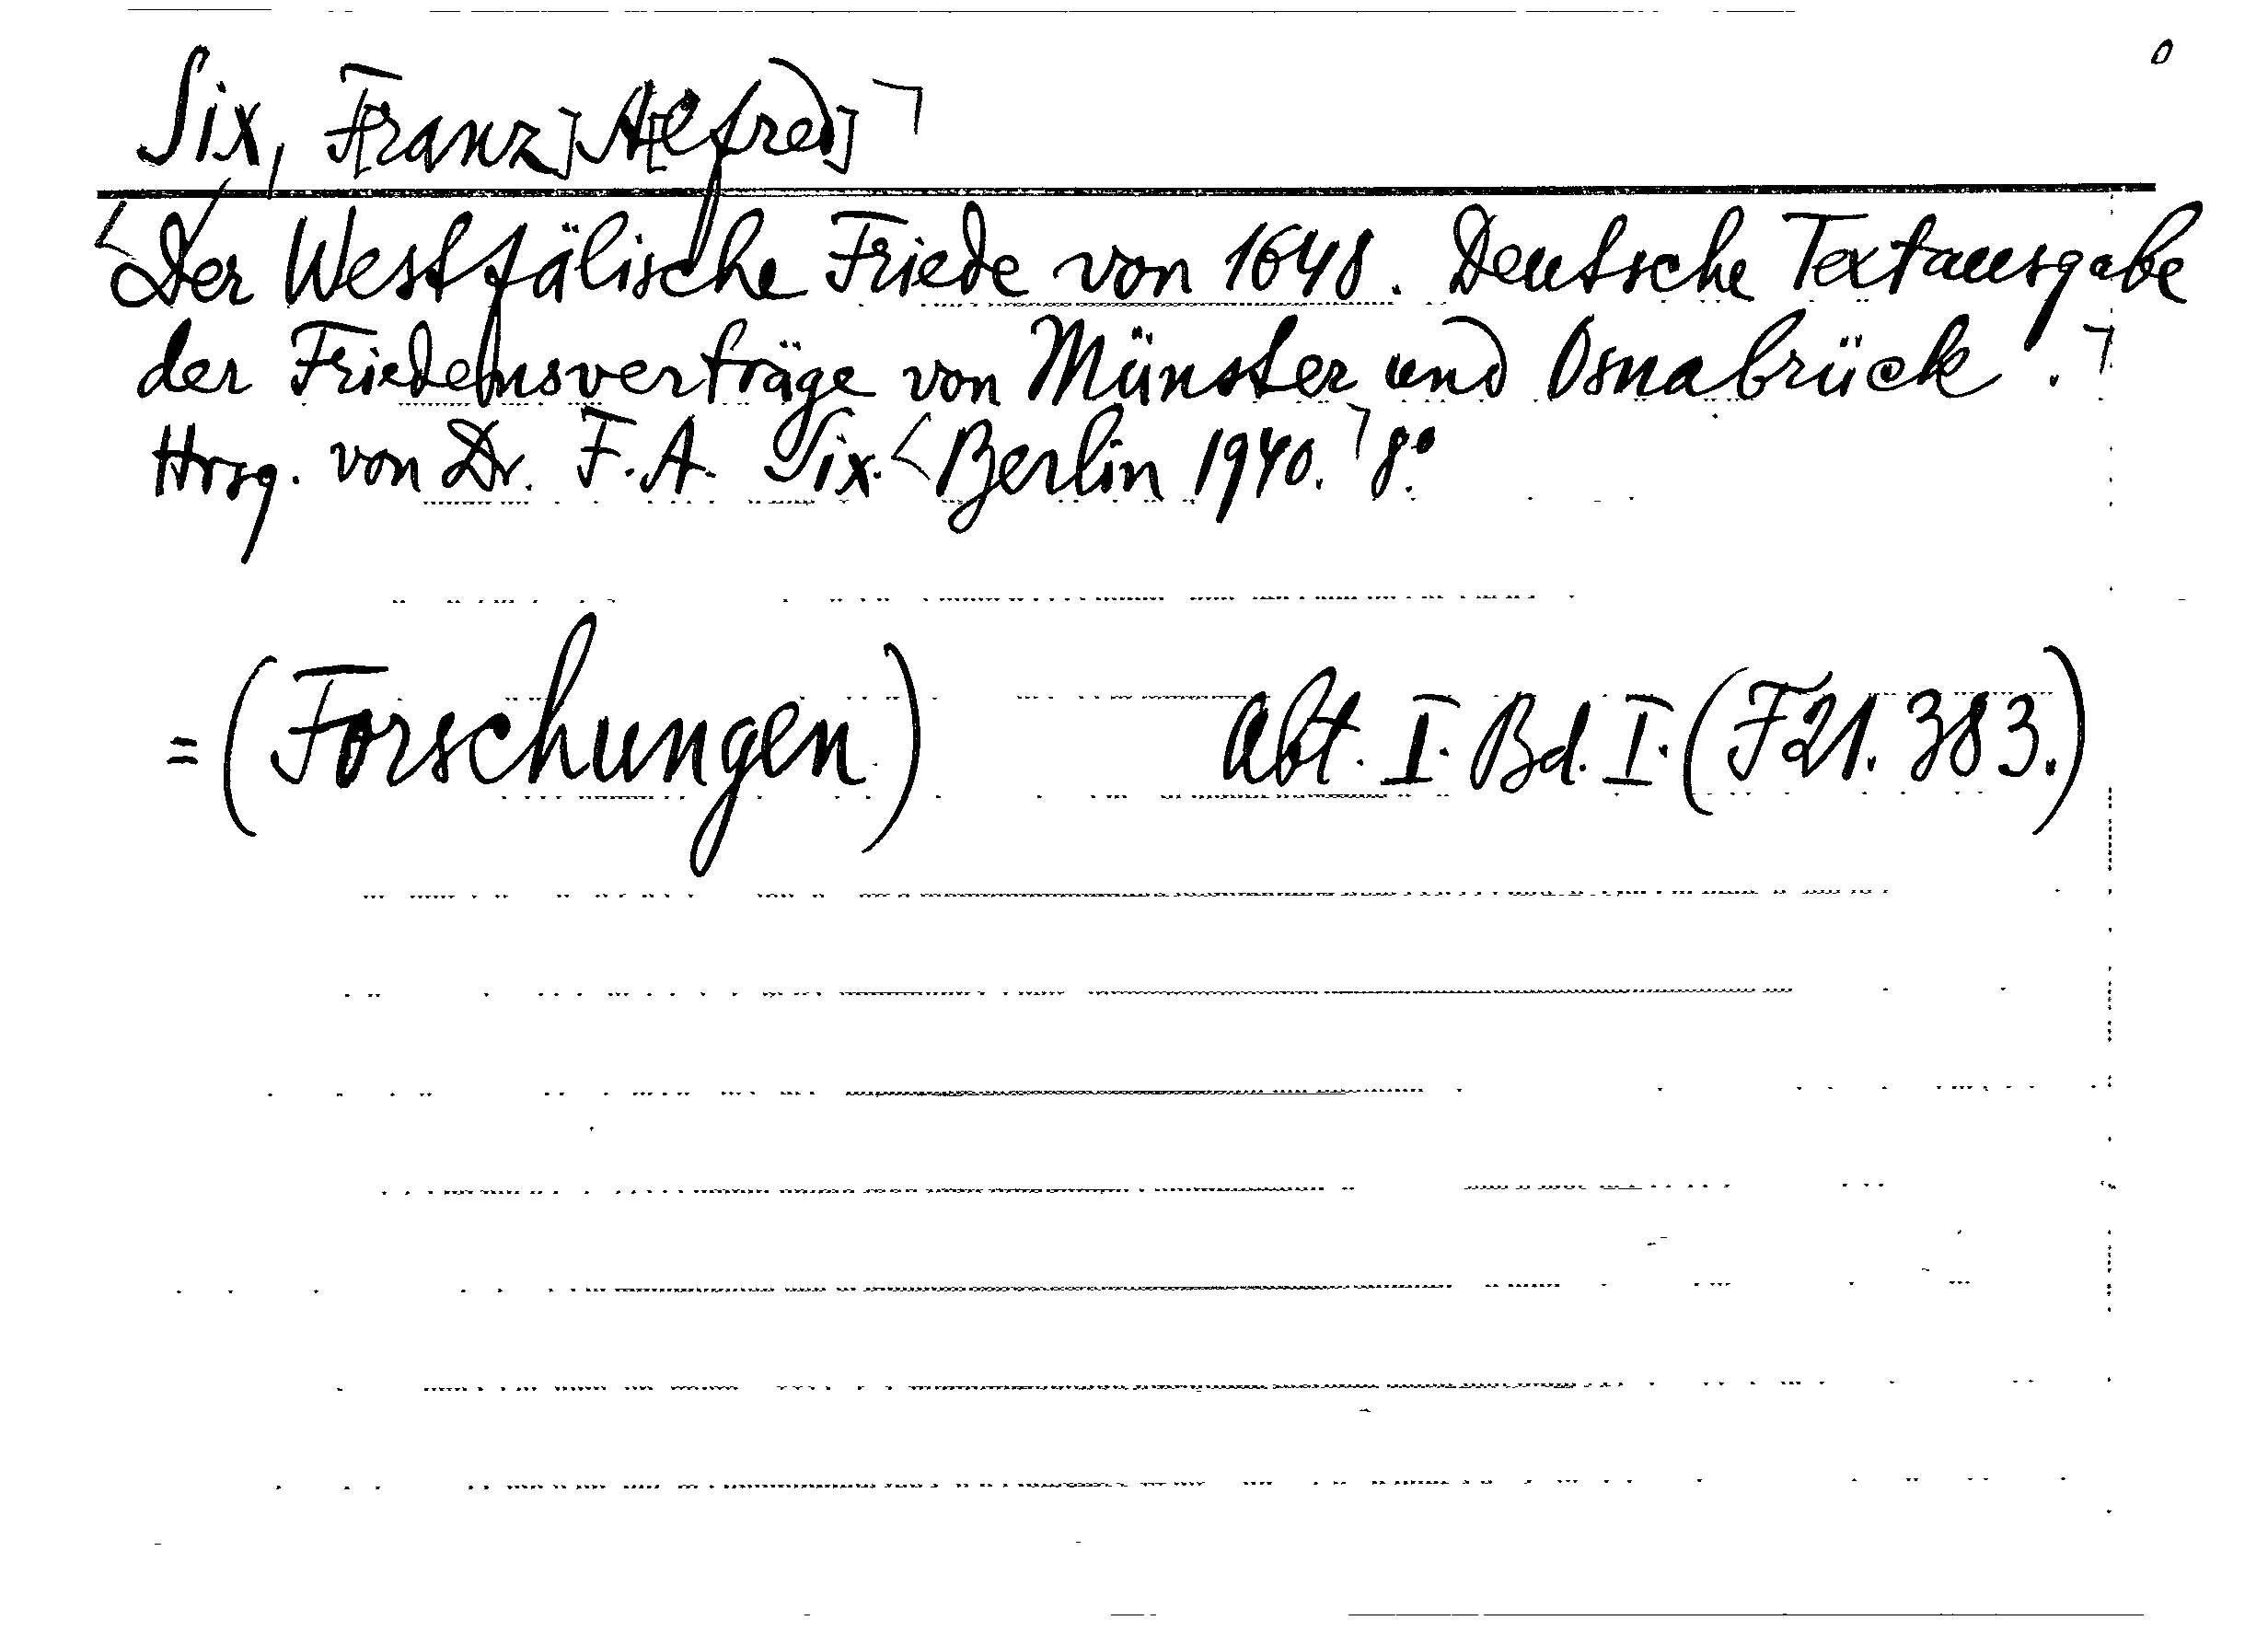 Six, F[ranz] A[lfred]
Der Westfälische Friede von 1648. Deutsche Textausgabe
der Friedensverträge von Münster und Osnabrück.
Hrsg. von Dr. F. A. Six. Berlin 1940. 8°
=(Forschungen) Abt. I. Bd. I. (F21. 383.)